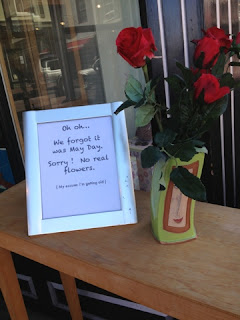 Oh oh...
We forgot it
was May Day.
Sorry! No real
flowers.
(My excuse: I'm getting old)